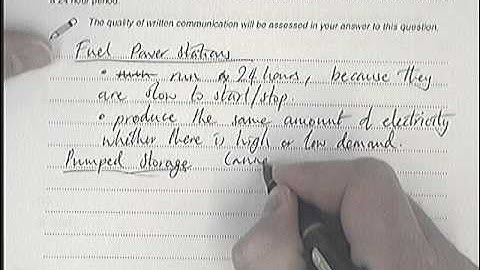 a 24 hour period.
The quality of written communication will be assessed in your answer to this question.
Fuel Power Stations
• run 24 hours, because they
are slow to start/stop.
• produce the same amount of electricity
whether there is high or low demand.
Pumped Storage Cann